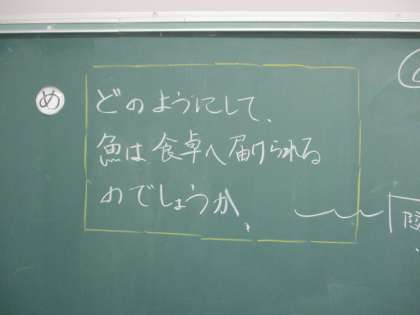 め
どのようにして、
魚は食卓へ届けられる
のでしょうか。